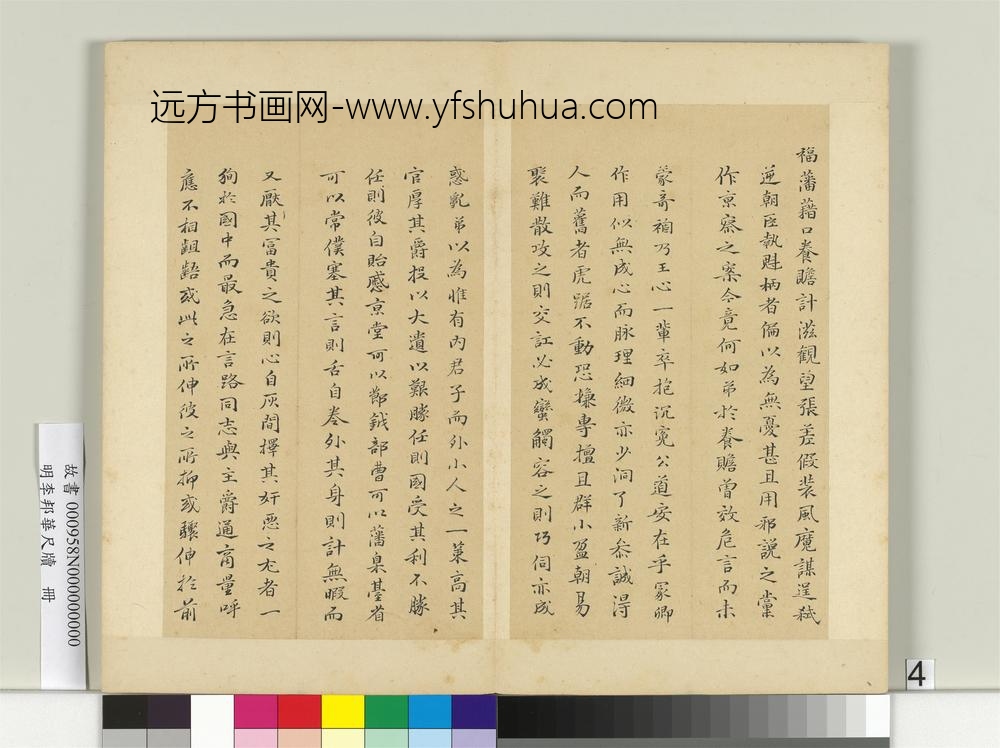 远方书画网-www.yfshuhua.com
福藩藉口養贍計滋觀望張差假装風魔謀逞弒
逆朝臣執魁柄者偏以為無憂甚且用邪說之黨
作京察之案今竟何如弟於養贍曾效危言而未
蒙奇禍乃王心一輩卒抱沉冤公道安在乎冢卿
作用似無成心而脉理細微亦少洞了新叅誠得
人而舊者虎踞不動恐嫌專擅且群小盈朝易
聚難散攻之則交訌必成蠻觸容之則巧伺亦成
惑亂弟以為惟有內君子而外小人之一策高其
官厚其爵投以大遺以艱勝任則國受其利不勝
任則彼自貽慼京堂可以節鉞部曹可以藩臬臺省
可以常僕塞其言則舌自卷外其身則計無暇而
又厭其冨貴之欲則心自灰間擇其奸惡之尤者一
狥於國中而最急在言路同志與主爵通商量呼
應不相齟齬或此之所伸彼之所抑或驟伸於前
故書 000958N000000000
明李邦華尺牘 冊
4